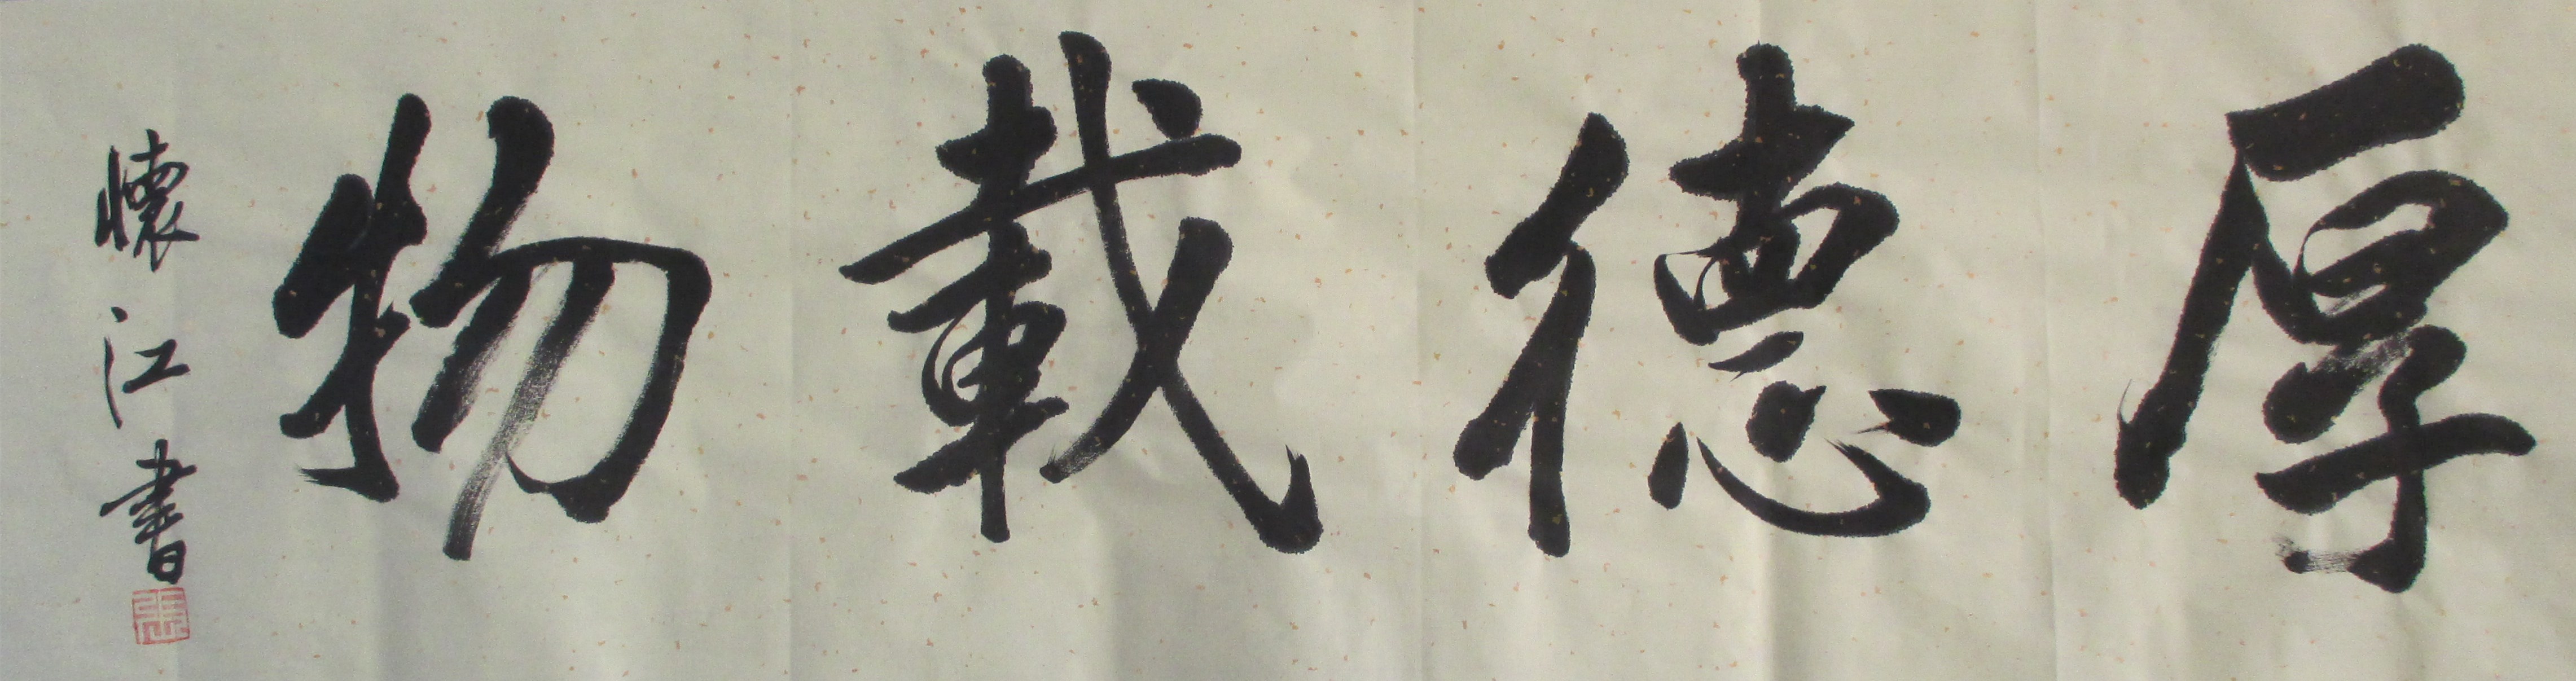 厚德載物
懷江書